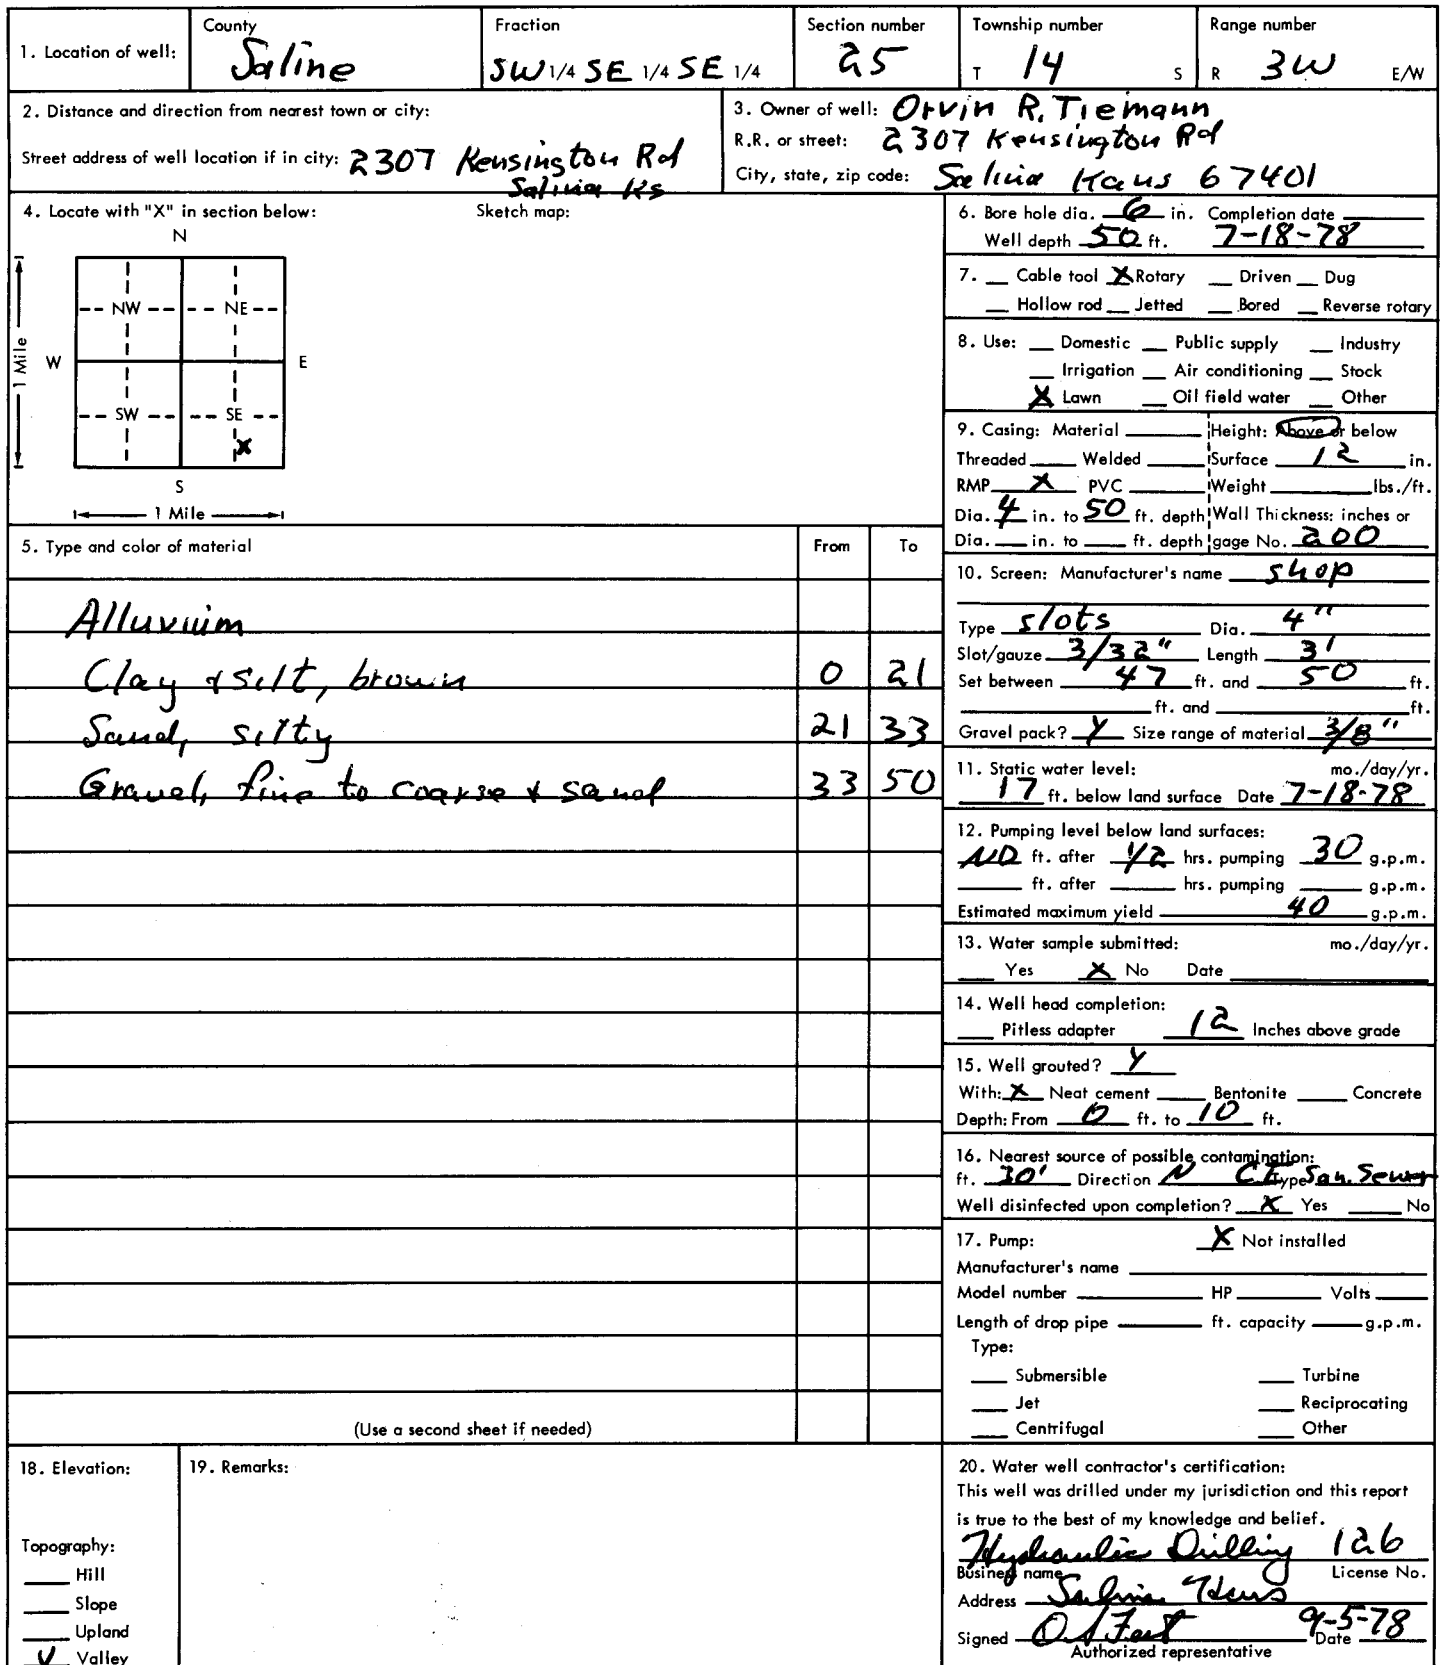 1. Location of well: County Saline Fraction SW 1/4 SE 1/4 SE 1/4 Section number 25 Township number T 14 S Range number R 3W E/W
2. Distance and direction from nearest town or city:
Street address of well location if in city: 2307 Kensington Rd
Salina Ks
3. Owner of well: Orvin R. Tiemann
R.R. or street: 2307 Kensington Rd
City, state, zip code: Salina Kans 67401
4. Locate with "X" in section below: Sketch map:
N
NW NE
W E
1 Mile
SW SE
X
S
1 Mile
5. Type and color of material From To
Alluvuim
Clay & silt, brown 0 21
Sand, silty 21 33
Gravel, fine to coarse & sand 33 50
(Use a second sheet if needed)
6. Bore hole dia. 6 in. Completion date
Well depth 50 ft. 7-18-78
7. __ Cable tool X Rotary __ Driven __ Dug
__ Hollow rod __ Jetted __ Bored __ Reverse rotary
8. Use: __ Domestic __ Public supply __ Industry
__ Irrigation __ Air conditioning __ Stock
X Lawn __ Oil field water __ Other
9. Casing: Material ____ Height: Above or below
Threaded ____ Welded ____ Surface 12 in.
RMP X PVC ____ Weight ____ lbs./ft.
Dia. 4 in. to 50 ft. depth Wall Thickness: inches or
Dia. __ in. to __ ft. depth gage No. 200
10. Screen: Manufacturer's name shop
Type slots Dia. 4"
Slot/gauze 3/32" Length 3'
Set between 47 ft. and 50 ft.
____ ft. and ____ ft.
Gravel pack? Y Size range of material 3/8"
11. Static water level: mo./day/yr.
17 ft. below land surface Date 7-18-78
12. Pumping level below land surfaces:
ND ft. after 1/2 hrs. pumping 30 g.p.m.
____ ft. after ____ hrs. pumping ____ g.p.m.
Estimated maximum yield 40 g.p.m.
13. Water sample submitted: mo./day/yr.
__ Yes X No Date ____
14. Well head completion:
__ Pitless adapter 12 Inches above grade
15. Well grouted? Y
With: X Neat cement __ Bentonite __ Concrete
Depth: From 0 ft. to 10 ft.
16. Nearest source of possible contamination:
ft. 30' Direction N CI Type San. Sewer
Well disinfected upon completion? X Yes __ No
17. Pump: X Not installed
Manufacturer's name ____
Model number ____ HP ____ Volts ____
Length of drop pipe ____ ft. capacity ____ g.p.m.
Type:
__ Submersible __ Turbine
__ Jet __ Reciprocating
__ Centrifugal __ Other
18. Elevation:
Topography:
__ Hill
__ Slope
__ Upland
✓ Valley
19. Remarks:
20. Water well contractor's certification:
This well was drilled under my jurisdiction and this report
is true to the best of my knowledge and belief.
Hydraulic Drilling 126
Business name License No.
Address Salina Kans
Signed 9-5-78 Date
Authorized representative